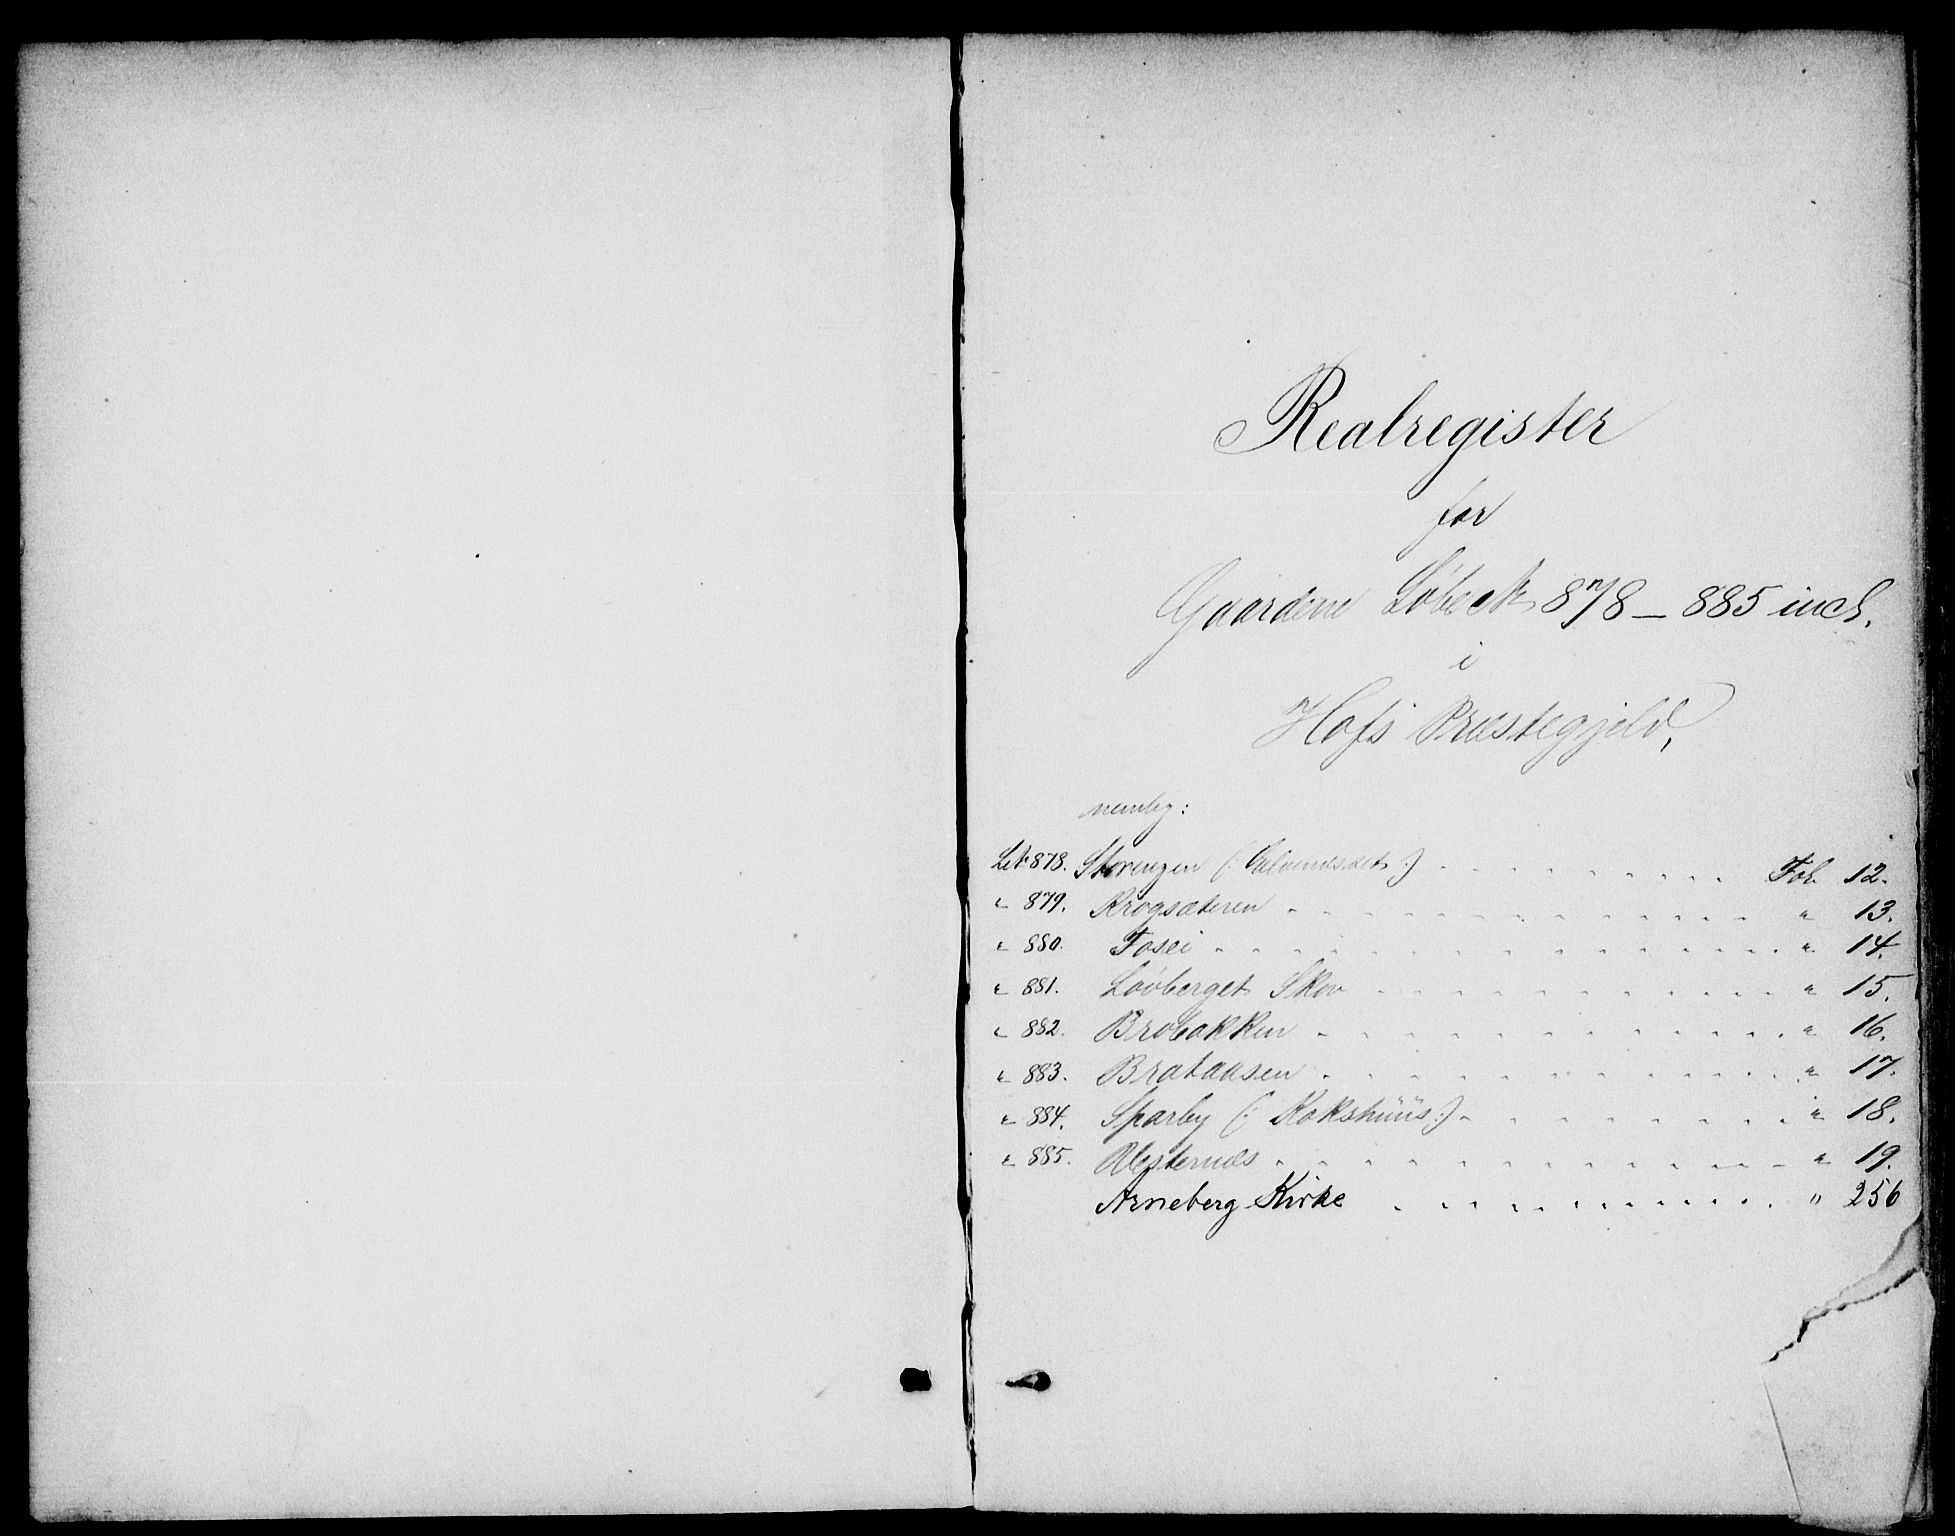 Realregister
for
Gaardene Løbek 878 – 885 incl.
i
Hofs Præstegjeld,
nemlig:
878. Storengen (: :) Fol. 12.
" 879. Krogsæteren " 13.
" 880. Fosei " 14.
" 881. Løvberget Skov " 15.
" 882. Brobakken " 16.
" 883. Brataasen " 17.
" 884. Sparby (: Kokshuus :) " 18.
" 885. Vesternæs " 19.
Arneberg Kirke " 256